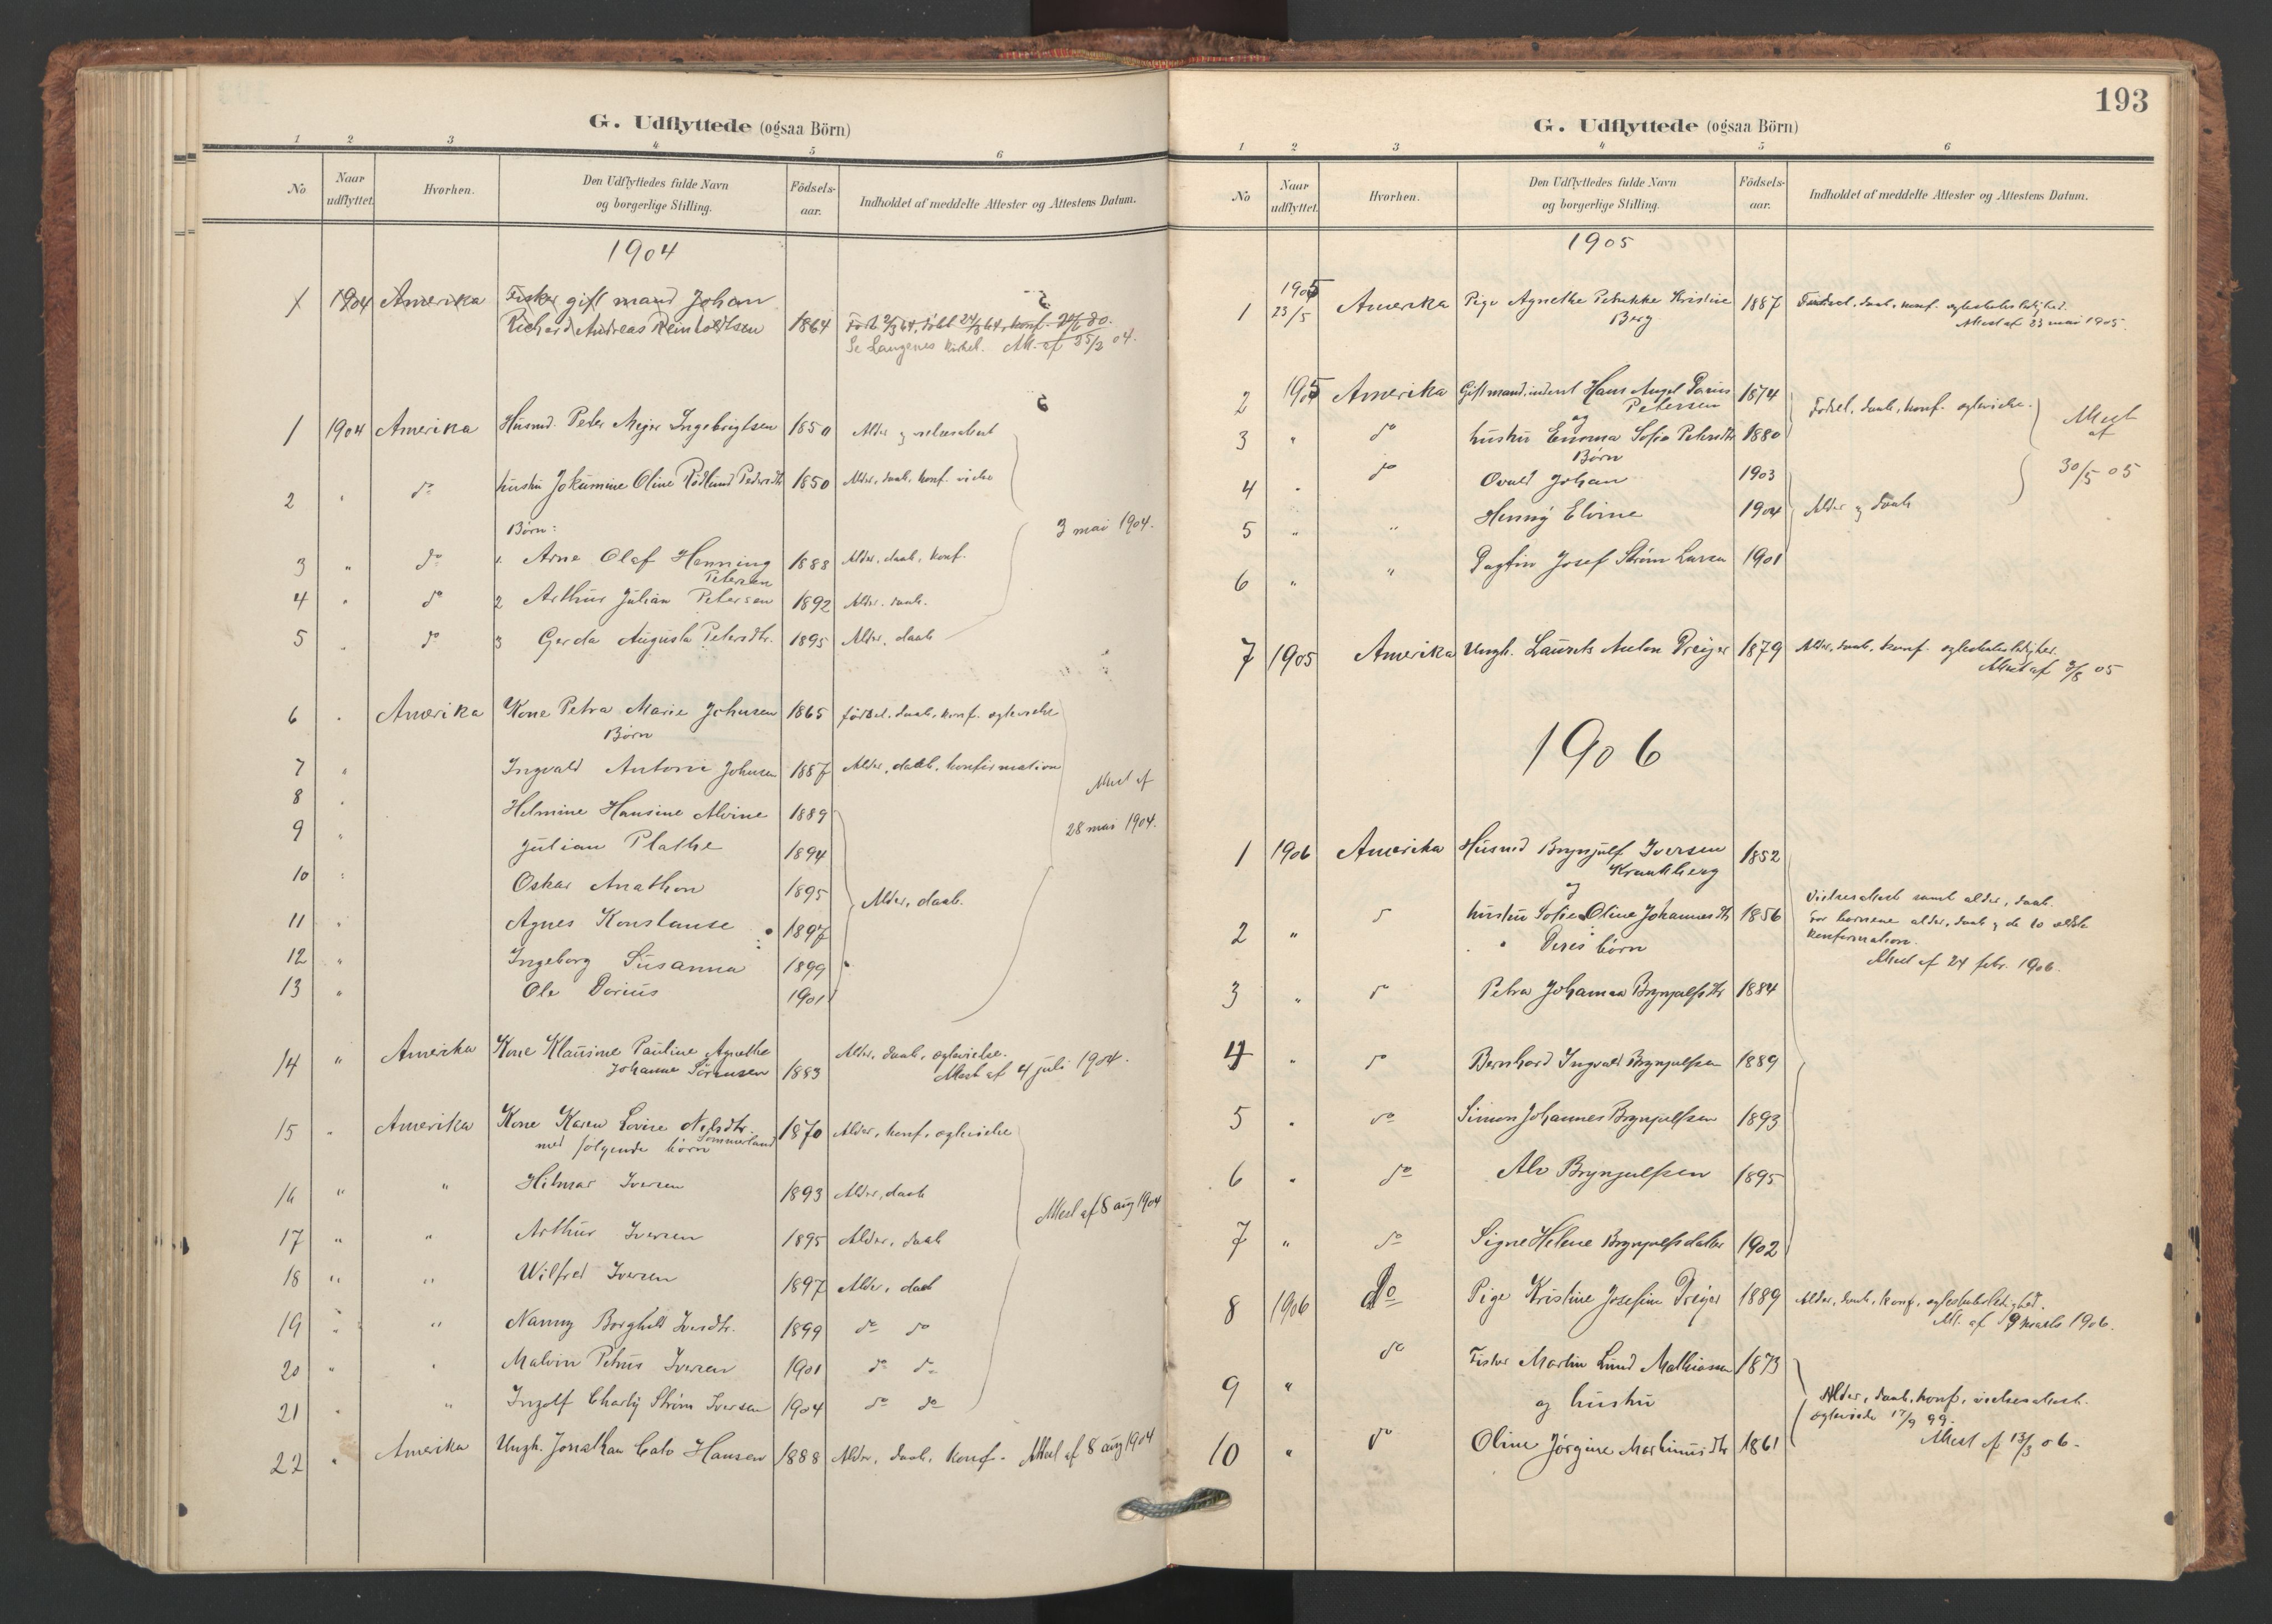 G. Udflyttede (ogsaa Börn)
1 2 3 4 5 6
No Naar udflyttet. Hvorhen. Den Udflyttedes fulde Navn og borgerlige Stilling. Födsels-aar. Indholdet af meddelte Attester og Attestens Datum.
1904
1904 Amerika Fisker gift mand Johan
Richard Andreas Reinholdtsen 1864
Se Langenes kirkeb. Att. af 25/3 04.
1 1904 Amerika Husmd. Peter Mejer Ingebrigtsen 1850 Alder og vielsesattest
2 " do hustru Jokumine Oline Rødlund Pedersdtr 1850 Alder, daab, konf. vielse
Børn:
3 mai 1904.
3 " do 1. Arne Olaf Henning 1888 Alder, daab, konf.
Petersen
4 " do 2 Arthur Julian Petersen 1892 Alder. daab.
5 " do 3 Gerda Augusta Petersdtr. 1895 Alder, daab
6 " Amerika Kone Petra Marie Johnsen 1865 födsel, daab, konf. og levnehe
Børn
7 " Ingvald Antoni Johnsen 1887 Alder, daab, konfirmation
Attest af
8 " Helmine Hansine Alvine 1889
28 mai 1904.
9 " Julian Plathe 1894
10 " Oskar Anathon 1895 Alder, daab.
11 " Agnes Konstanse 1897
12 " Ingeborg Susanna 1899
13 " Ole Dorius 1901
14 " Amerika Kone Klausine Pauline Agnethe Alder, daab, og levielse.
Johanne Sörensen 1883 Attest af 4 juli 1904.
15 " Amerika Kone Karen Lovise Nilsdtr. 1870 Alder, konf. og levielse
Sommerland
med følgende børn
16 " " Hilmar Iversen 1893 Alder, daab
Attest af 8 aug 1904
17 " " Arthur Iversen 1895 Alder, daab
18 " " Wilfred Iversen 1897 Alder, daab
19 " " Nanny Borghild Iversdtr. 1899 do do
20 " " Malvin Petrus Iversen 1901 do do
21 " " Ingolf Charly Strøm Iversen 1904 do do
22 " Amerika Ungk. Jonathan Cato Hansen 1888 Alder, daab, konf. Attest af 8 aug 1904
193
G. Udflyttede (ogsaa Börn)
1 2 3 4 5 6
No Naar udflyttet. Hvorhen. Den Udflyttedes fulde Navn og borgerlige Stilling. Födsels-aar. Indholdet af meddelte Attester og Attestens Datum.
1905
1 1905 23/5 Amerika Pige Agnethe Petrikke Kristine 1887 Födsel, daab, konf. og
Berg Attest af 23 mai 1905.
2 1905 Amerika Gift mand, inderst Hans Angel Darius 1874 Fødsel, daab, konf.
Petersen
og Attest af
3 " do hustru Emma Sofie Petersdtr 1880
Børn
30/5 05
4 " do Ovald Johan 1903
5 " " Henny Elvine 1904 Alder og daab
6 " " Dagfin Josef Strøm Larsen 1901
7 1905 Amerika Ungk. Laurits Anton Dreyer 1879 Alder, daab, konf. og
Attest af 2/8 05
1906
1 1906 Amerika Husmd Brynjulf Iversen 1852
Kraakberg
og
2 " do hustru Sofie Oline Johannesdtr 1856 Vielsesattest samt alder, daab.
For børnene alder, daab og de to ældste
konfirmation.
Deres børn
Attest af 24 febr. 1906.
3 " do Petra Johanna Brynjulfsdtr 1884
4 " do Bernhard Ingvald Brynjulfsen 1889
5 " do Simon Johannes Brynjulfsen 1893
6 " do Alv Brynjulfsen 1895
7 " do Signe Helene Brynjulfsdatter 1902
8 1906 do Pige Kristine Josefine Dreyer 1889 Alder, daab, konf.
Att. af 9 marts 1906.
9 " do Fisker Martin Lind Mathiassen 1873
og hustru
Alder, daab, konf, vielsesattest.
17/9 99.
10 " do Oline Jörgine Martinusdtr 1861 Attest af 13/3 06.